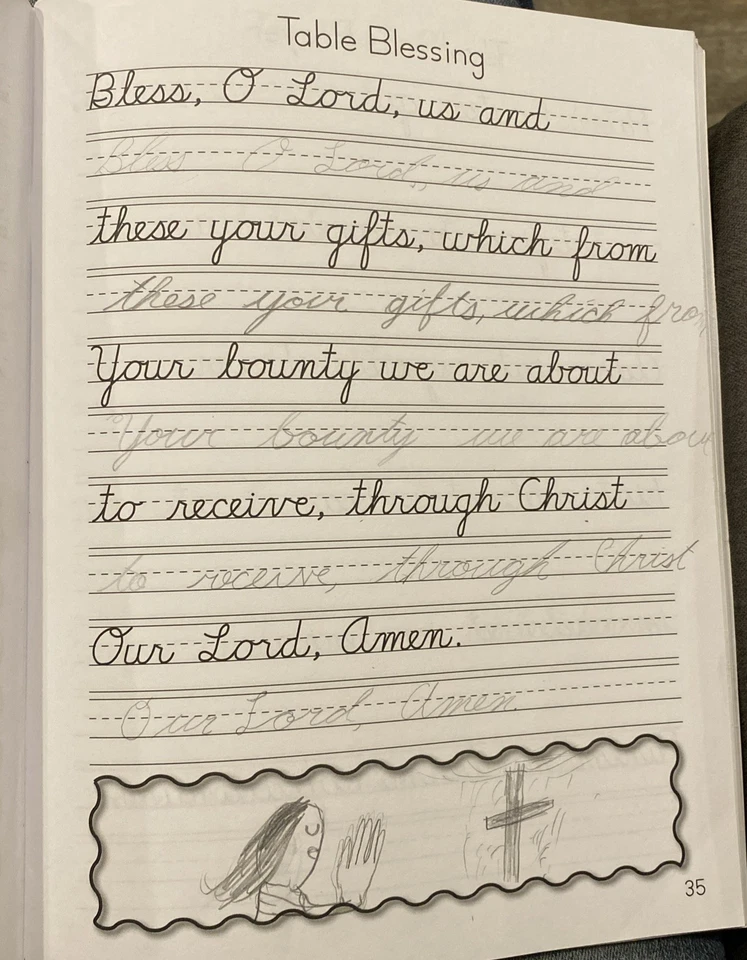 Table Blessing
Bless, O Lord, us and
Bless O Lord, us and
these your gifts, which from
these your gifts, which from
Your bounty we are about
Your bounty we are about
to receive, through Christ
to receive, through Christ
Our Lord, Amen.
Our Lord, Amen
35